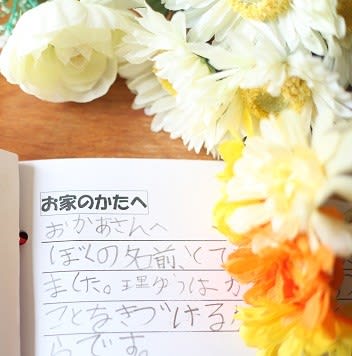 お家のかたへ
おかあさんへ
ぼくの名前、とて
ました。理ゆうは、か
ことなきづける
らです。